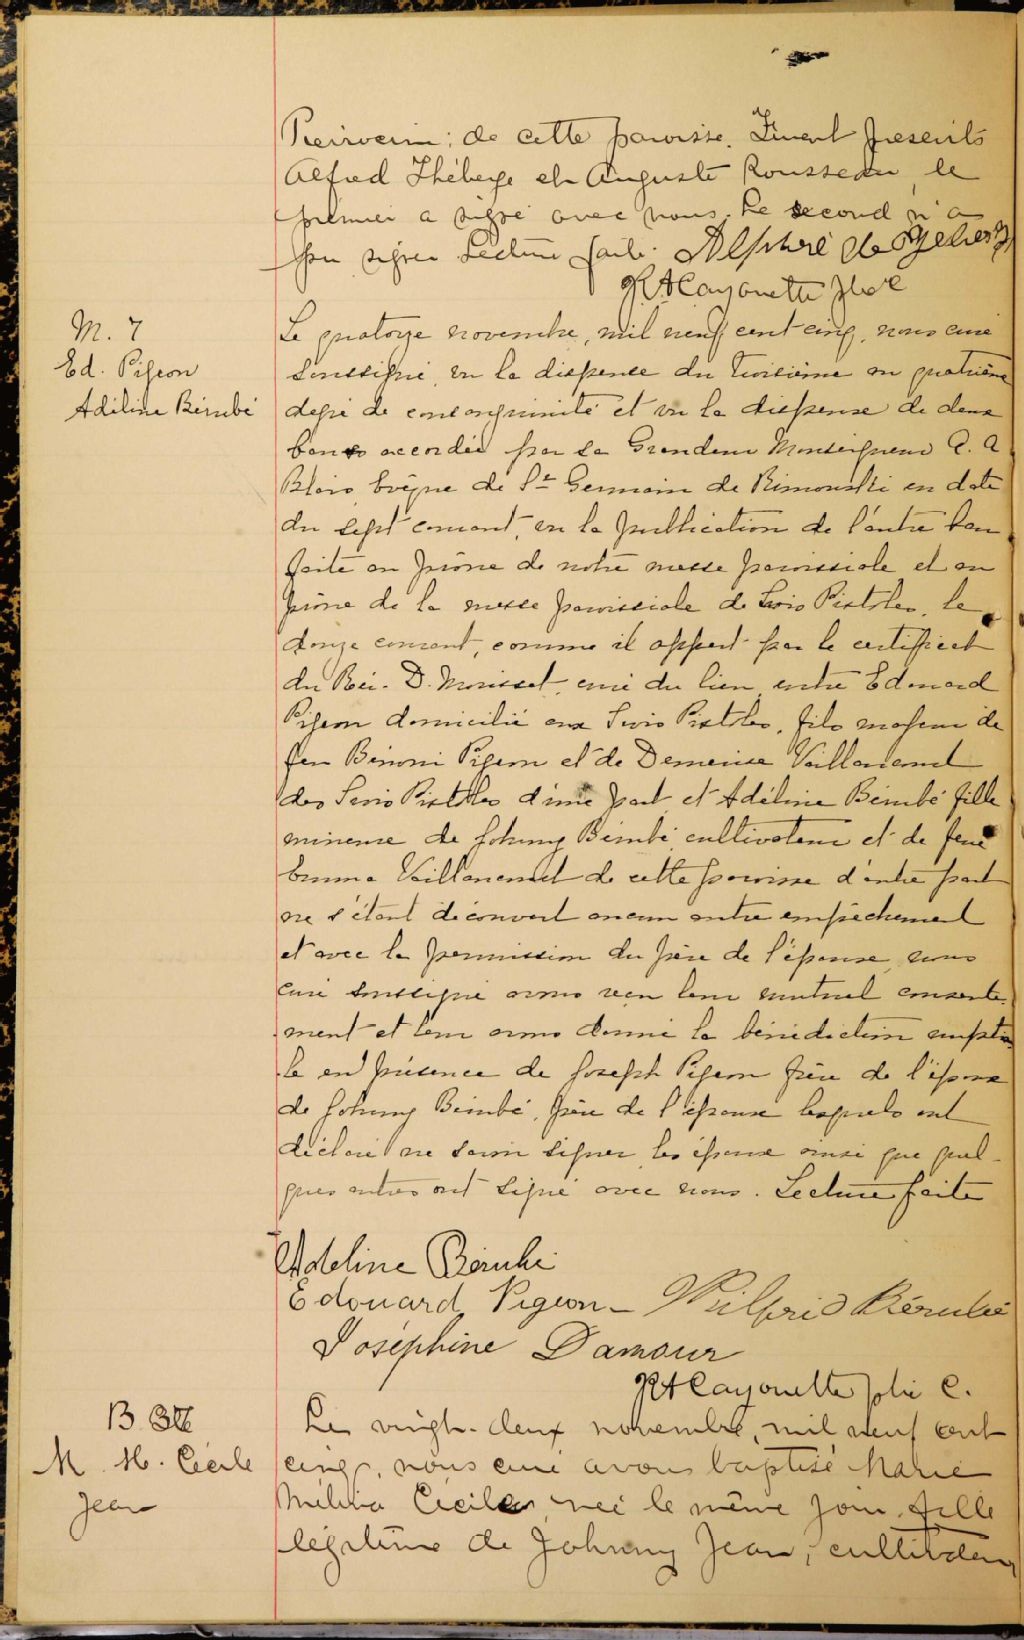 de cette paroisse. Furent presents
Alfred Théberge et Auguste Rousseau, le
premier a signé avec nous. Le second n'a
pu signer Lecture faite.
Cayouette Ptre C
M. 7
Ed. Pigeon
Adéline Bérubé
Le quatorze novembre, mil neuf cent cinq, nous curé
soussigné, vu la dispense du troisième au quatrième
degré de consanguinité et vu la dispense de deux
bans accordée par sa Grandeur Monseigneur A. A
Blais Evêque de St Germain de Rimouski en date
du sept courant, vu la publication de l'autre ban
faite au prône de notre messe paroissiale et au
prône de la messe paroissiale de Trois Pistoles, le
douze courant, comme il appert par le certificat
du Rév. D. Morisset, curé du lieu, entre Edouard
Pigeon domicilié aux Trois Pistoles, fils majeur de
feu Bénoni Pigeon et de Demerise Vaillancourt
des Trois Pistoles d'une part, et Adéline Bérubé fille
mineure de Johnny Bérubé, cultivateur et de feue
Emma Vaillancourt de cette paroisse d'autre part
ne s'étant découvert aucun autre empêchement
et avec la permission du père de l'épouse, nous
curé soussigné avons reçu leur mutuel consente-
ment et leur avons donné la bénédiction nuptia-
le en présence de Joseph Pigeon frère de l'époux
de Johnny Bérubé, père de l'épouse lesquels ont
déclaré ne savoir signer, les époux ainsi que quel-
ques autres ont signé avec nous. Lecture faite
Adeline Bérubé
Edouard Pigeon - Wilfrid Bérubé
Joséphine Damour
Cayouette ptre C.
B.
M. M. Cécile
Jean
Le vingt-deux novembre, mil neuf cent
cinq, nous curé avons baptisé Marie
Mélina Cécile, née le même jour, fille
légitime de Johnny Jean, cultivateur